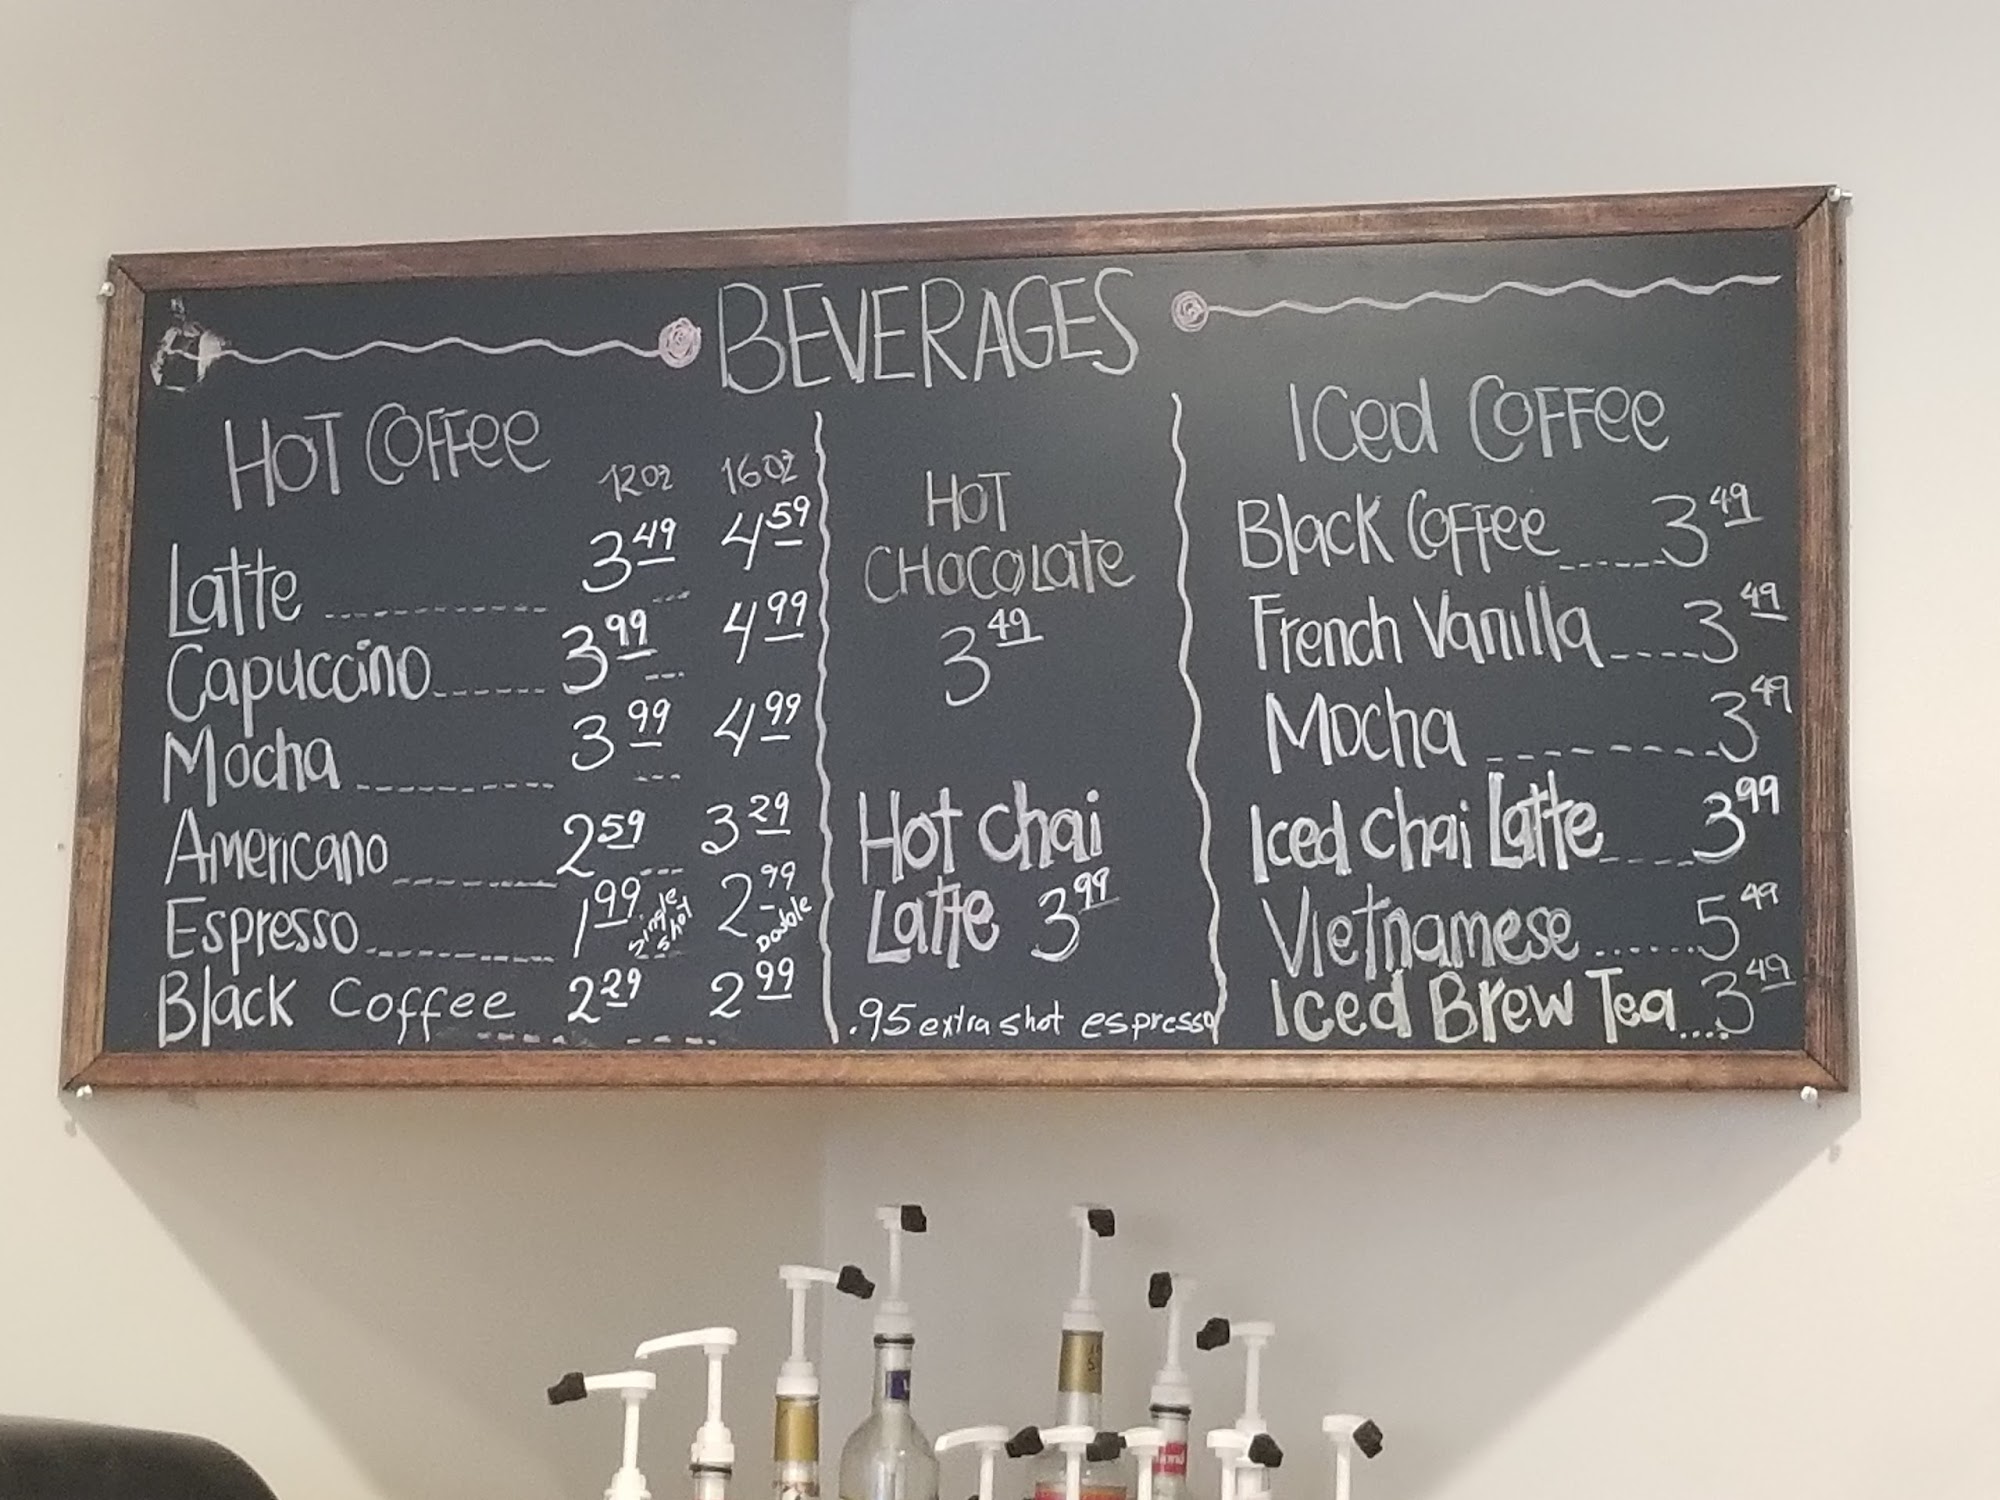 BEVERAGES
HOT COFFEE
12oz 16oz
Latte ---------- 3.49 --- 4.59
Capuccino ------ 3.99 --- 4.99
Mocha ---------- 3.99 --- 4.99
Americano ------- 2.59 --- 3.29
Espresso --------- 1.99 single shot --- 2.99 Double
Black Coffee ----- 2.29 ---- 2.99
HOT
CHOCOLATE
3.49
Hot chai
Latte 3.99
.95 extra shot espresso
Iced COFFEE
Black Coffee ------ 3.49
French Vanilla ---- 3.49
Mocha --------- 3.49
Iced chai Latte ---- 3.99
Vietnamese ....... 5.49
Iced Brew Tea .... 3.49